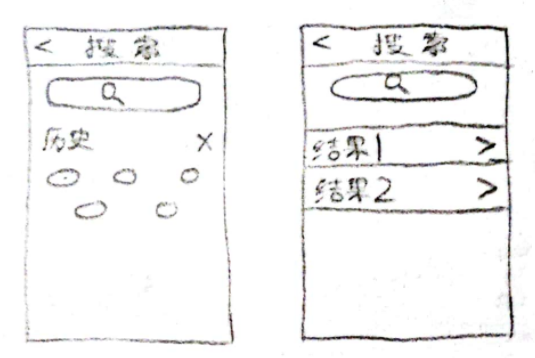 < 搜索
历史 X
< 搜索
结果1 >
结果2 >